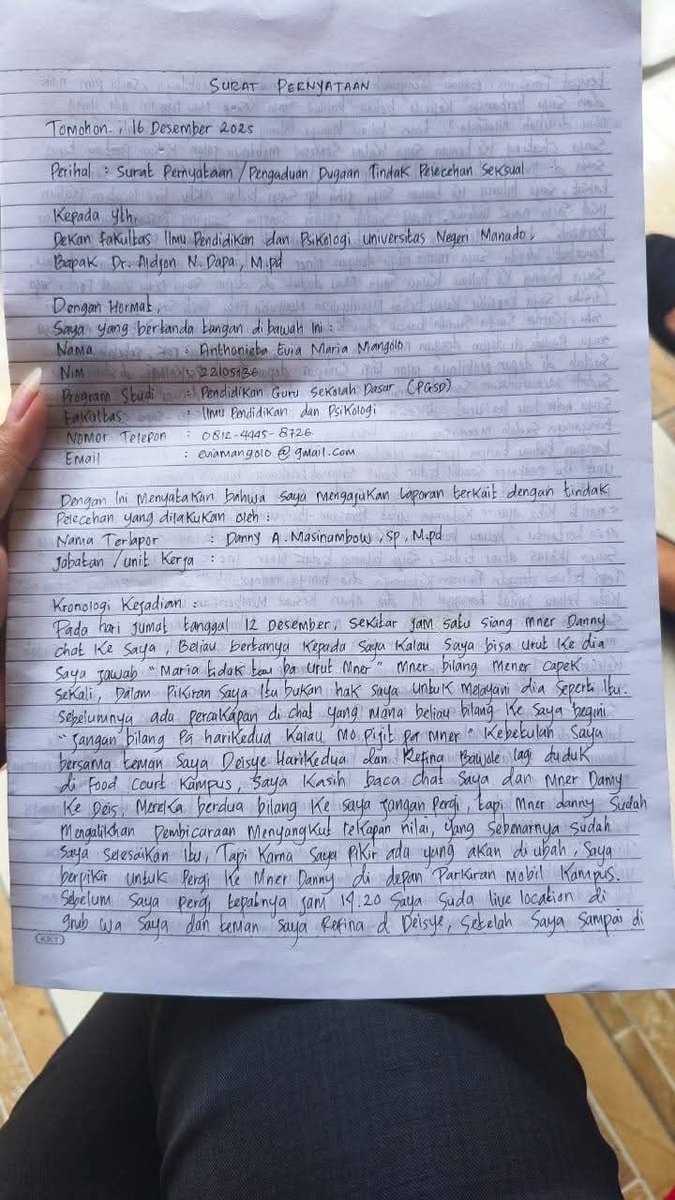 SURAT PERNYATAAN
Tomohon, 16 Desember 2025
Perihal : Surat Pernyataan / Pengaduan Dugaan Tindak Pelecehan Seksual
Kepada Yth,
Dekan Fakultas Ilmu Pendidikan dan Psikologi Universitas Negeri Manado,
Bapak Dr. Aldjon N. Dapa, M.pd
Dengan Hormat,
Saya yang bertanda tangan dibawah ini :
Nama : Anthonieta Evia Maria Mangolo
Nim : 22105136
Program Studi : Pendidikan Guru Sekolah Dasar (PGSD)
Fakultas : Ilmu Pendidikan dan Psikologi
Nomor Telepon : 0812-4445-8726
Email : eviamangolo@gmail.com
Dengan Ini Menyatakan bahwa saya mengajukan laporan terkait dengan tindak
Pelecehan yang dilakukan oleh :
Nama Terlapor : Danny A. Masinambow, Sp, M.pd
Jabatan / unit Kerja :
Kronologi Kejadian :
Pada hari Jumat tanggal 12 Desember, sekitar jam satu siang mner Danny
chat ke saya, Beliau bertanya kepada saya kalau saya bisa urut ke dia
saya jawab "Maria tidak tau ba urut mner" mner bilang mener capek
sekali, Dalam pikiran saya itu bukan hak saya untuk melayani dia seperti itu.
Sebelumnya ada percakapan di chat yang mana beliau bilang ke saya begini
"Jangan bilang pa harikedua kalau mo pijit pa mner" Kebetulan saya
bersama teman saya Deisye Harikedua dan Refina lagi duduk
di Food Court Kampus, Saya kasih baca chat saya dan mner Danny
ke Deis, Mereka berdua bilang ke saya jangan pergi, tapi mner danny sudah
mengalihkan Pembicaraan Menyangkut rekapan nilai, yang sebenarnya sudah
saya selesaikan itu, Tapi karna saya pikir ada yang akan di ubah, saya
berpikir untuk pergi ke mner Danny di depan Parkiran Mobil Kampus.
Sebelum saya pergi tepatnya jam 14.20 saya suda live location di
grub wa saya dan teman saya Refina d Deisye, setelah saya sampai di
KKY